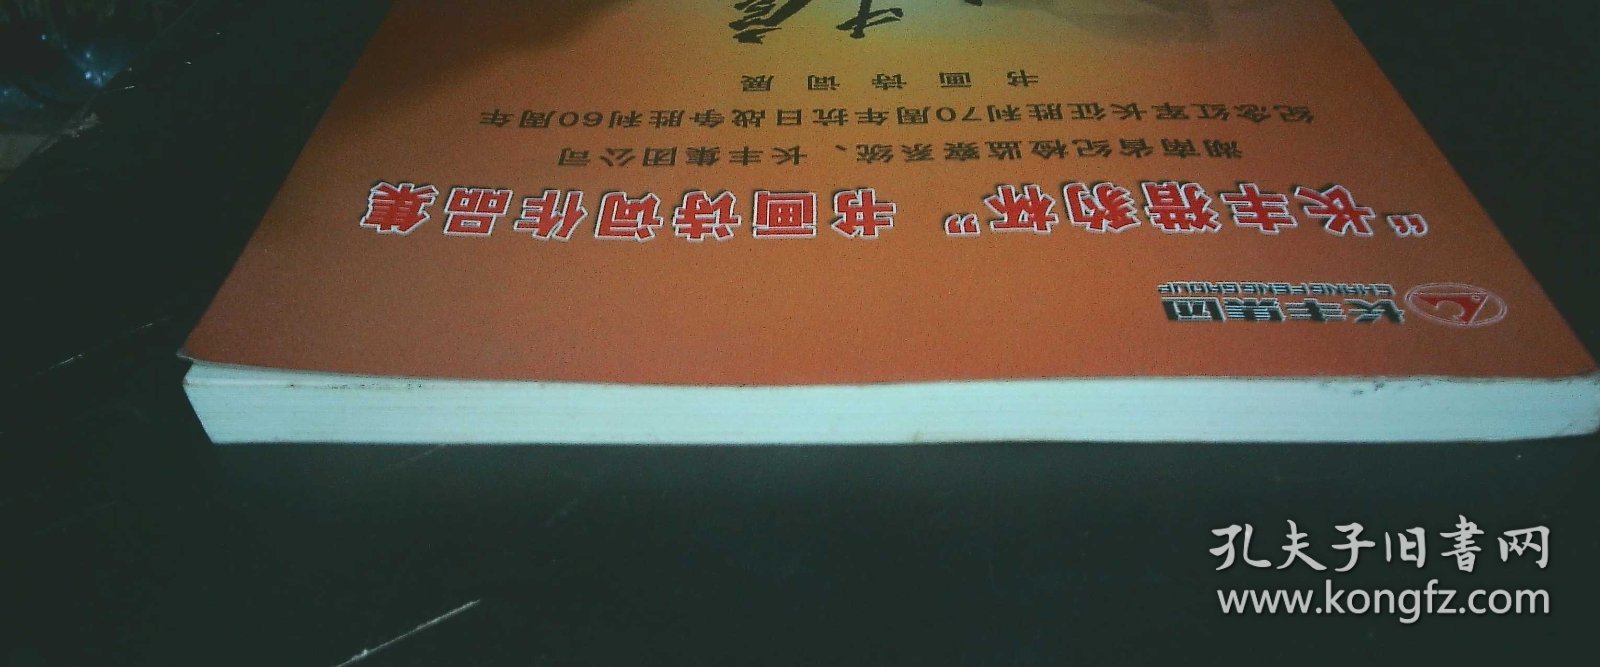 长丰集团
CHANGFENG GROUP
“长丰猎豹杯”书画诗词作品集
湖南省纪检监察系统、长丰集团公司
纪念红军长征胜利70周年抗日战争胜利60周年
书画诗词展
孔夫子旧书网
www.kongfz.com